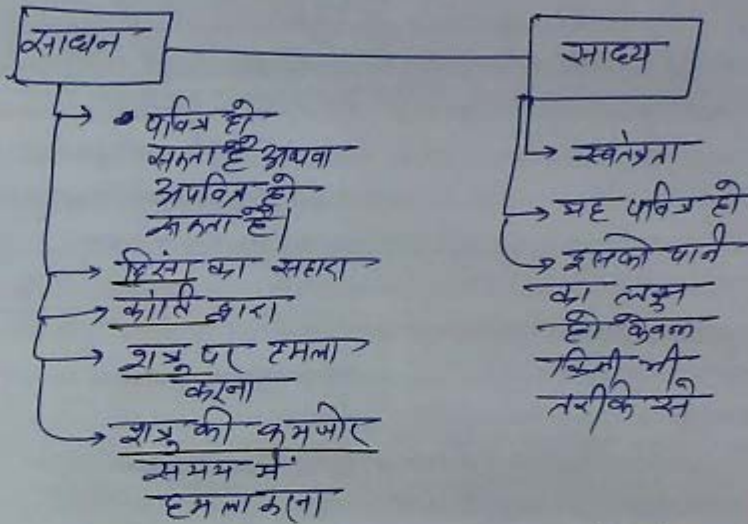 साधन
साध्य
• पवित्र हो
सकता है अथवा
अपवित्र हो
सकता है।
हिंसा का सहारा
क्रांति द्वारा
शत्रु पर हमला
करना
शत्रु की कमजोर
समय में
हमला करना
स्वतंत्रता
यह पवित्र हो
इसको पाने
का लक्ष्य
हो केवल
किसी भी
तरीके से